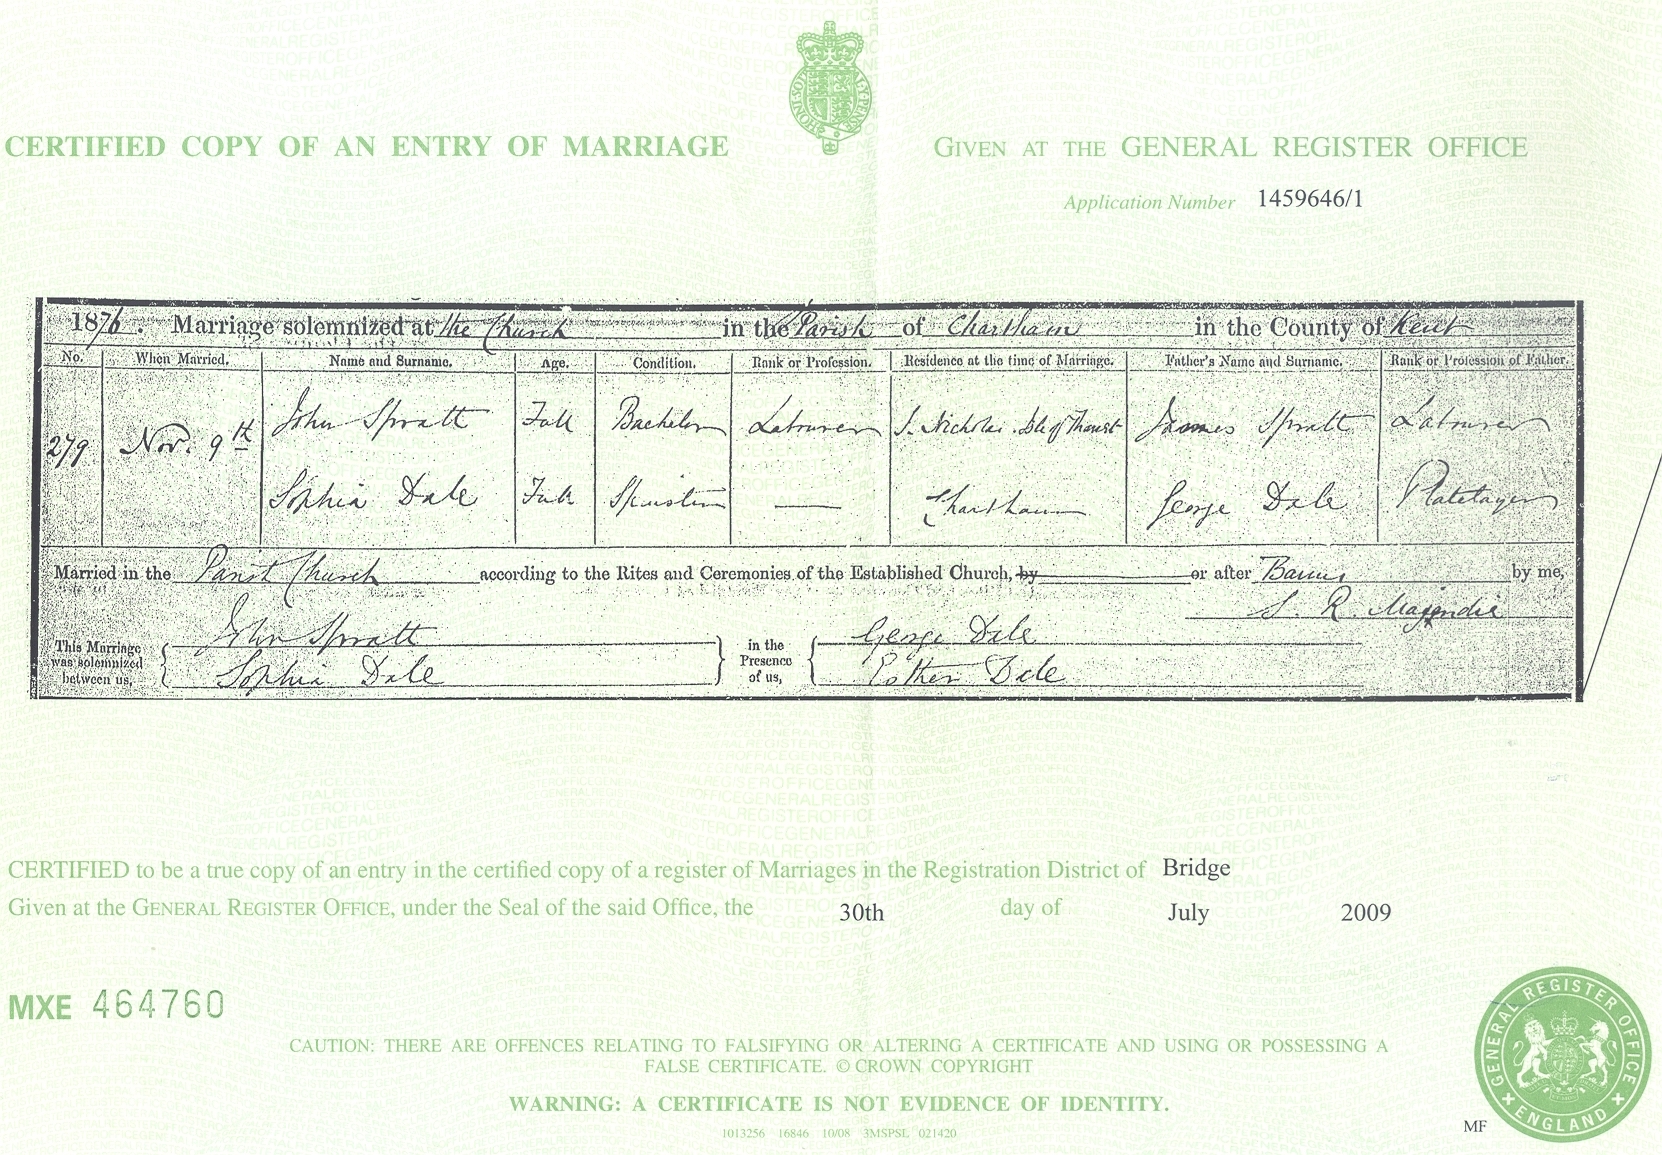 HONI SOIT QUI MAL Y PENSE
CERTIFIED COPY OF AN ENTRY OF MARRIAGE
GIVEN AT THE GENERAL REGISTER OFFICE
Application Number 1459646/1
1876. Marriage solemnized at the Church in the Parish of Chartham in the County of Kent
No. When Married. Name and Surname. Age. Condition. Rank or Profession. Residence at the time of Marriage. Father's Name and Surname. Rank or Profession of Father.
279 Nov. 9th John Spratt Full Bachelor Labourer S. Nicholas Isle of Thanet James Spratt Labourer
Sophia Dale Full Spinster — Chartham George Dale Platelayer
Married in the Parish Church according to the Rites and Ceremonies of the Established Church, by or after Banns by me,
S. R. Majendie
This Marriage was solemnized between us, John Spratt in the Presence of us, George Dale
Sophia Dale Esther Dale
CERTIFIED to be a true copy of an entry in the certified copy of a register of Marriages in the Registration District of Bridge
Given at the GENERAL REGISTER OFFICE, under the Seal of the said Office, the 30th day of July 2009
MXE 464760
CAUTION: THERE ARE OFFENCES RELATING TO FALSIFYING OR ALTERING A CERTIFICATE AND USING OR POSSESSING A
FALSE CERTIFICATE. © CROWN COPYRIGHT
WARNING: A CERTIFICATE IS NOT EVIDENCE OF IDENTITY.
1013256 16846 10/08 3MSPSL 021420
MF
GENERAL REGISTER OFFICE
ENGLAND